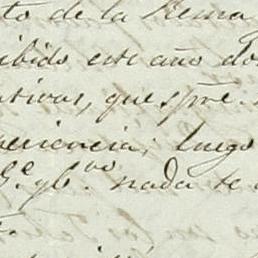 to de la Reina
cibido este año do
ativas, que spre.
periencia, luego
nada se